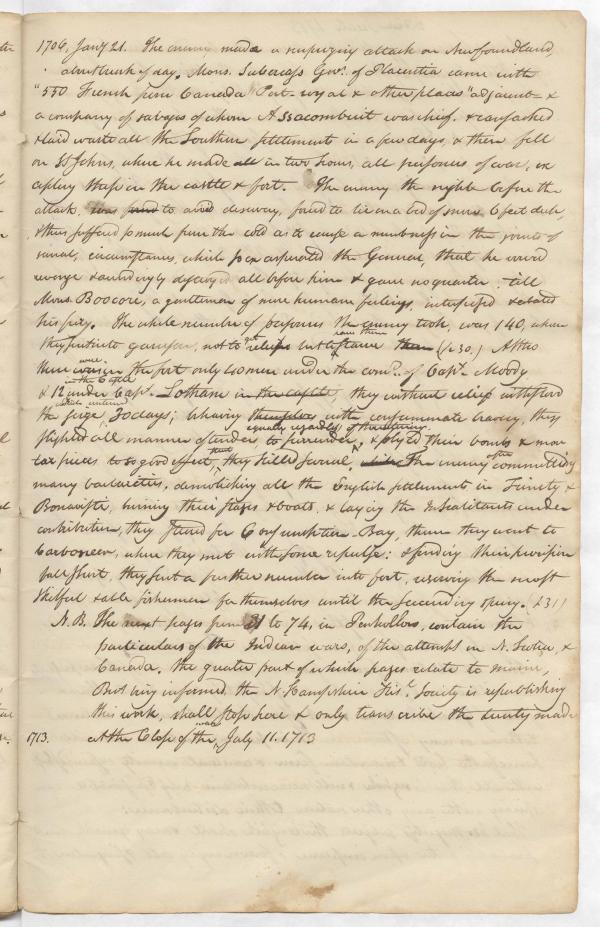 1706, Jany 21. The enemy made a surprizing attack on Newfoundland,
about break of day. Mons. Subercass Govr. of Placentia came with
"550 French from Canada" Port-royal & other places "adjacent- &
a company of savages of whom Assacombuit was chief. & ransacked
& laid waste all the Southern settlement in a few days, & then fell
on St Johns, where he made all in two hours, all prisoners of war, ex
cepting those in the castle & fort. The enemy the night before the
attack, was forced to avoid discovery, forced to lie on a bed of snow 6 feet deep,
& thus suffered so much from the cold as to cause a numbness in the joints of
several, circumstances, which so exasperated the General, that he vowed
revenge & accordingly destroyed all before him & gave no quarter, till
Mons. Boocore, a gentleman of more humane feelings, interposed & abated
his fury. The whole number of prisoners the enemy took, was 140, whom
they sent into garrison, not to get relief but to starve them (p. 30.) At this
time were in the fort only 40 men under the comd. of Capt. Moody
& 12 in the Castle under Capt. Lotham in the castle, they without relief withstood
the seige, which continued 30 days; behaving themselves with consummate bravery, they
slighted all manner of tender to surrender, equally regardless of threatening & plyed their bombs & mor
tar pieces to so good effect that they killed several, The enemy after committing
many barbarities, demolishing all the English settlement in Trinity &
Bonaviste, burning their stages & boats, & laying the Inhabitants under
contribution, they steered for Consumption Bay, thence they went to
Carboneer, where they met with some repulse: & finding their provision
fall short, they sent a further number into fort, reserving the most
skilful & able fishermen for themselves until the succeeding spring. (p. 31)
N.B. The next pages from 31 to 74, in Penhallow, contain the
particulars of the Indian wars, of the attempts in N. Scotia, &
Canada. the greater part of which pages relate to Maine,
But being informed the N. Hampshire Hist. Society is republishing
this work, shall stop here & only transcribe the treaty made
1713. At the Close of the war, July 11. 1713